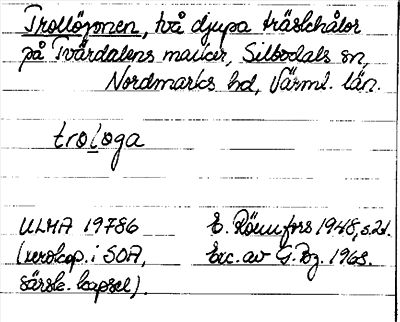 Trollögonen, två djupa träskhålor
på Tvärdalens marker, Silbodals sn,
Nordmarks hd, Värml. län.
trologa
ULMA 19786
(xerokop. i SOA,
särsk. kapsel).
E. Rönnfors 1948, s.21.
Exc. av G. Bg. 1968.